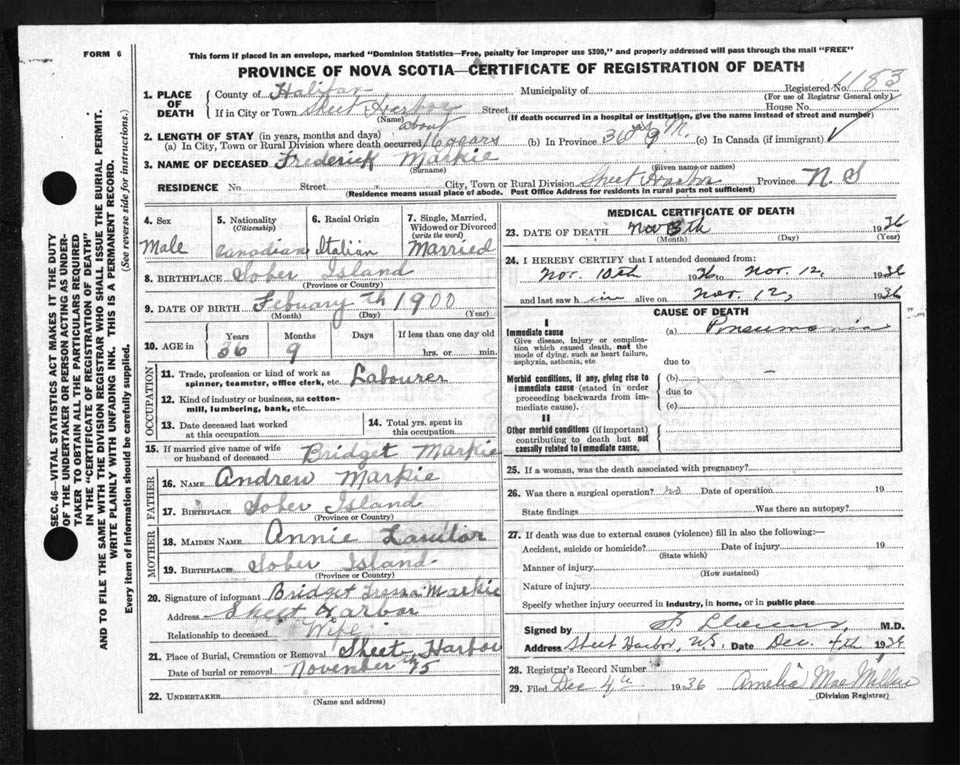 FORM 6
This form if placed in an envelope, marked "Dominion Statistics—Free, penalty for improper use $300," and properly addressed will pass through the mail "FREE"
PROVINCE OF NOVA SCOTIA—CERTIFICATE OF REGISTRATION OF DEATH
SEC. 46—VITAL STATISTICS ACT MAKES IT THE DUTY
OF THE UNDERTAKER OR PERSON ACTING AS UNDER-
TAKER TO OBTAIN ALL THE PARTICULARS REQUIRED
IN THE "CERTIFICATE OF REGISTRATION OF DEATH"
AND TO FILE THE SAME WITH THE DIVISION REGISTRAR WHO SHALL ISSUE THE BURIAL PERMIT.
WRITE PLAINLY WITH UNFADING INK. THIS IS A PERMANENT RECORD.
Every item of information should be carefully supplied. (See reverse side for instructions.)
1. PLACE OF DEATH
County of Halifax Municipality of Registered No. 4183
(For use of Registrar General only)
If in City or Town Sheet Harbor Street House No.
(Name) (If death occurred in a hospital or institution, give the name instead of street and number)
2. LENGTH OF STAY (in years, months and days)
(a) In City, Town or Rural Division where death occurred about 16 years (b) In Province 36 yrs 9 M. (c) In Canada (if immigrant)
3. NAME OF DECEASED Frederick Markie
(Surname) (Given name or names)
RESIDENCE No. Street City, Town or Rural Division Sheet Harbor Province N. S
(Residence means usual place of abode. Post Office Address for residents in rural parts not sufficient)
4. Sex Male
5. Nationality (Citizenship) Canadian
6. Racial Origin Italian
7. Single, Married, Widowed or Divorced (write the word) Married
8. BIRTHPLACE Sober Island
(Province or Country)
9. DATE OF BIRTH Febuary th 1900
(Month) (Day) (Year)
10. AGE in Years 36 Months 9 Days If less than one day old hrs. or min.
OCCUPATION
11. Trade, profession or kind of work as spinner, teamster, office clerk, etc. Labourer
12. Kind of industry or business, as cotton-mill, lumbering, bank, etc.
13. Date deceased last worked at this occupation
14. Total yrs. spent in this occupation
15. If married give name of wife or husband of deceased Bridget Markie
FATHER
16. NAME Andrew Markie
17. BIRTHPLACE Sober Island
(Province or Country)
MOTHER
18. MAIDEN NAME Annie
19. BIRTHPLACE Sober Island
(Province or Country)
20. Signature of informant Bridget Markie
Address Sheet Harbor
Relationship to deceased Wife
21. Place of Burial, Cremation or Removal Sheet Harbor
Date of burial or removal November 15
22. UNDERTAKER
(Name and address)
MEDICAL CERTIFICATE OF DEATH
23. DATE OF DEATH Nov 1936
(Month) (Day) (Year)
24. I HEREBY CERTIFY that I attended deceased from:
Nov. 10th 1936 to Nov. 12, 1936
and last saw him alive on Nov. 12, 1936
CAUSE OF DEATH
I
Immediate cause
Give disease, injury or complication which caused death, not the mode of dying, such as heart failure, asphyxia, asthenia, etc.
(a) Pneumonia
due to
Morbid conditions, if any, giving rise to immediate cause (stated in order proceeding backwards from immediate cause).
(b)
due to
(c)
II
Other morbid conditions (if important) contributing to death but not causally related to immediate cause.
25. If a woman, was the death associated with pregnancy?
26. Was there a surgical operation? no Date of operation 19
State findings Was there an autopsy?
27. If death was due to external causes (violence) fill in also the following:—
Accident, suicide or homicide? Date of injury 19
(State which)
Manner of injury
(How sustained)
Nature of injury
Specify whether injury occurred in industry, in home, or in public place
Signed by M.D.
Address Sheet Harbor, N.S. Date Dec. 4th 193
28. Registrar's Record Number
29. Filed Dec 4th 1936 Amelia
(Division Registrar)